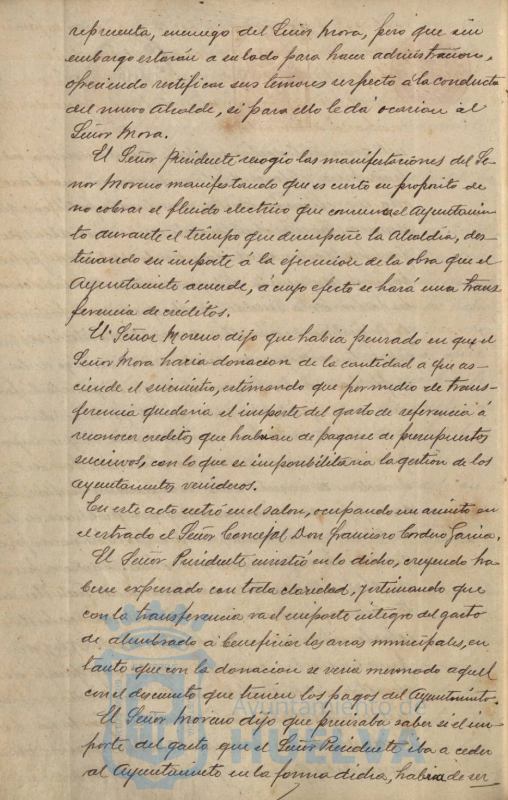 representa, enemigo del Señor Mora, pero que sin
embargo estarán a su lado para hacer administracion,
ofreciendo rectificar sus temores respecto á la conducta
del nuevo Alcalde, si para ello le dá ocasion el
Señor Mora.
El Señor Presidente recogio las manifestaciones del Se-
ñor Moreno manifestando que es cierto su proposito de
no cobrar el fluido electrico que consuma el Ayuntamien-
to durante el tiempo que desempeñe la Alcaldia, des-
tinando su importe á la ejecucion de la obra que el
Ayuntamiento acuerde, á cuyo efecto se hará una trans
ferencia de créditos.
El Señor Moreno dijo que habia pensado en que el
Señor Mora haria donacion de la cantidad a que as-
ciende el suministro, estimando que por medio de trans-
ferencia quedaria el importe del gasto de referencia á
reconocer creditos que habrian de pagarse de presupuestos
sucesivos, con lo que se imposibilitaria la gestion de los
Ayuntamientos venideros.
En este acto entró en el salon, ocupando un asiento en
el estrado el Señor Concejal Don Francisco Cordero Garcia.
El Señor Presidente insistió en lo dicho, creyendo ha
berse expresado con toda claridad, y estimando que
con la transferencia va el importe integro del gasto
de alumbrado a beneficiar las arcas municipales, en
tanto que con la donacion se veria mermado aquel
con el descuento que tienen los pagos del Ayuntamiento.
El Señor Moreno dijo que precisaba saber si el im-
porte del gasto que el Señor Presidente iba a ceder
al Ayuntamiento en la forma dicha, habria de ser
Ayuntamiento de
HUELVA